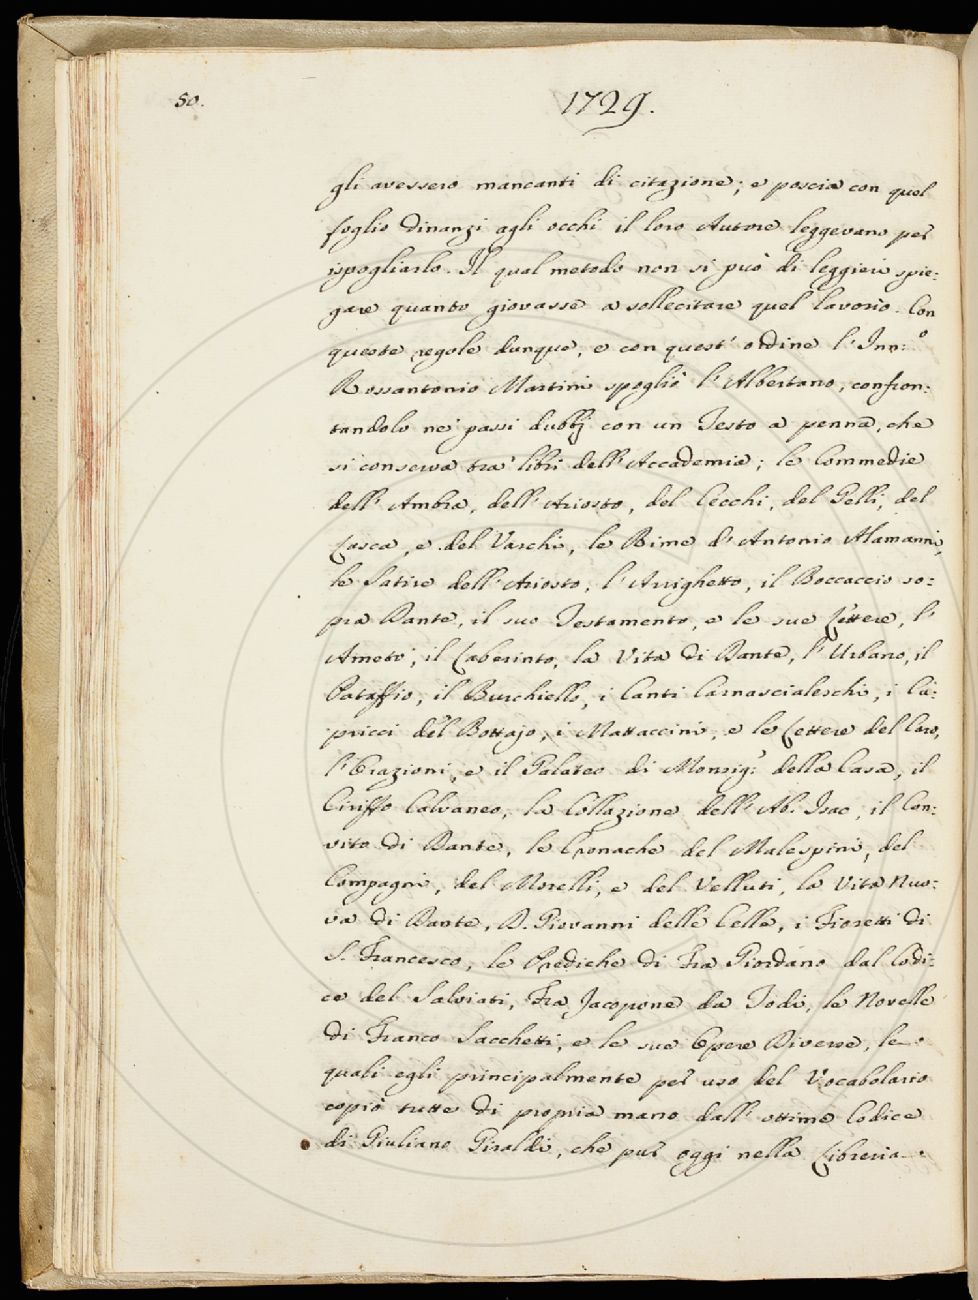 50.
1729.
gli avessero mancanti di citazione; e poscia con quel
foglio dinanzi agli occhi il loro Autore leggevano per
ispogliarlo. Il qual metodo non si può di leggieri spie:
gare quanto giovasse a sollecitare quel lavorio. Con
queste regole dunque, e con quest' ordine l' Inn:o
Rossantonio Martini spogliò l' Albertano, confron:
tandolo ne' passi dubbj con un Testo a penna, che
si conserva tra' libri dell' Accademia; le Commedie
dell' Ambra, dell' Ariosto, del Cecchi, del Gelli, del
Lasca, e del Varchi, le Rime d' Antonio Alamanni,
le Satire dell' Ariosto, l' Arrighetto, il Boccaccio so:
pra Dante, il suo Testamento, e le sue Lettere, l'
Ameto, il Laberinto, la Vita di Dante, l' Urbano, il
Pataffio, il Burchiello, i Canti Carnascialeschi, i Ca:
pricci del Bottajo, i Mattaccini, e le Lettere del Caro,
l' Orazioni, e il Galateo di Monsig.r della Casa, il
Ciriffo Calvaneo, la Collazione dell' Ab. Isac, il Con:
vito di Dante, le Cronache del Malespini, del
Compagni, del Morelli, e del Velluti, la Vita Nuo:
va di Dante, D. Giovanni delle Celle, i Fioretti di
S. Francesco, le Prediche di Fra Giordano dal Codi:
ce del Salviati, Fra Jacopone da Todi, le Novelle
di Franco Sacchetti, e le sue Opere Diverse, le
quali egli principalmente per uso del Vocabolario
copiò tutte di propria mano dall' ottimo Codice
di Giuliano Giraldi, che pur oggi nella Libreria